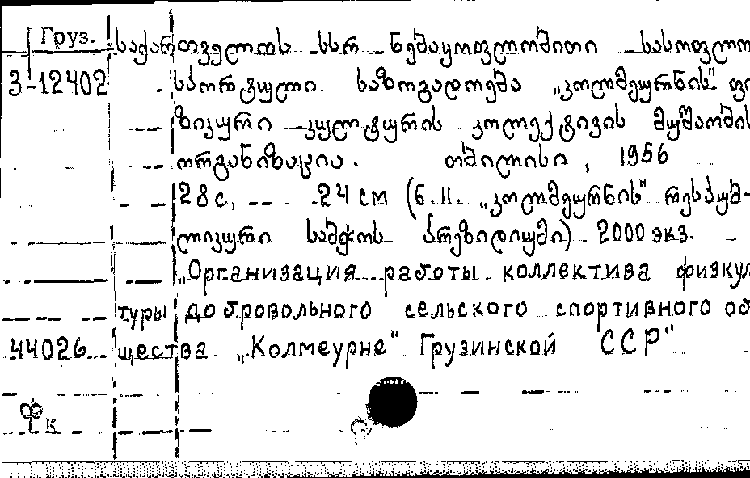 Груз. საქართველოს სსრ ნებაყოფლობითი სასოფლო
3-12402 სპორტული საზოგადოება „კოლმეურნის" ფი
ზიკური კულტურის კოლექტივის მუშაობის
ორგანიზაცია. თბილისი, 1956
28 с, 24 см (б.п. „კოლმეურნის" რესპუბ-
ლიკური საბჭოს პრეზიდიუმი) 2000 экз.
„Организация работы коллектива физкул
туры добровольного сельского спортивного об
44026 щества „Колмеурне" Грузинской ССР"
Фк